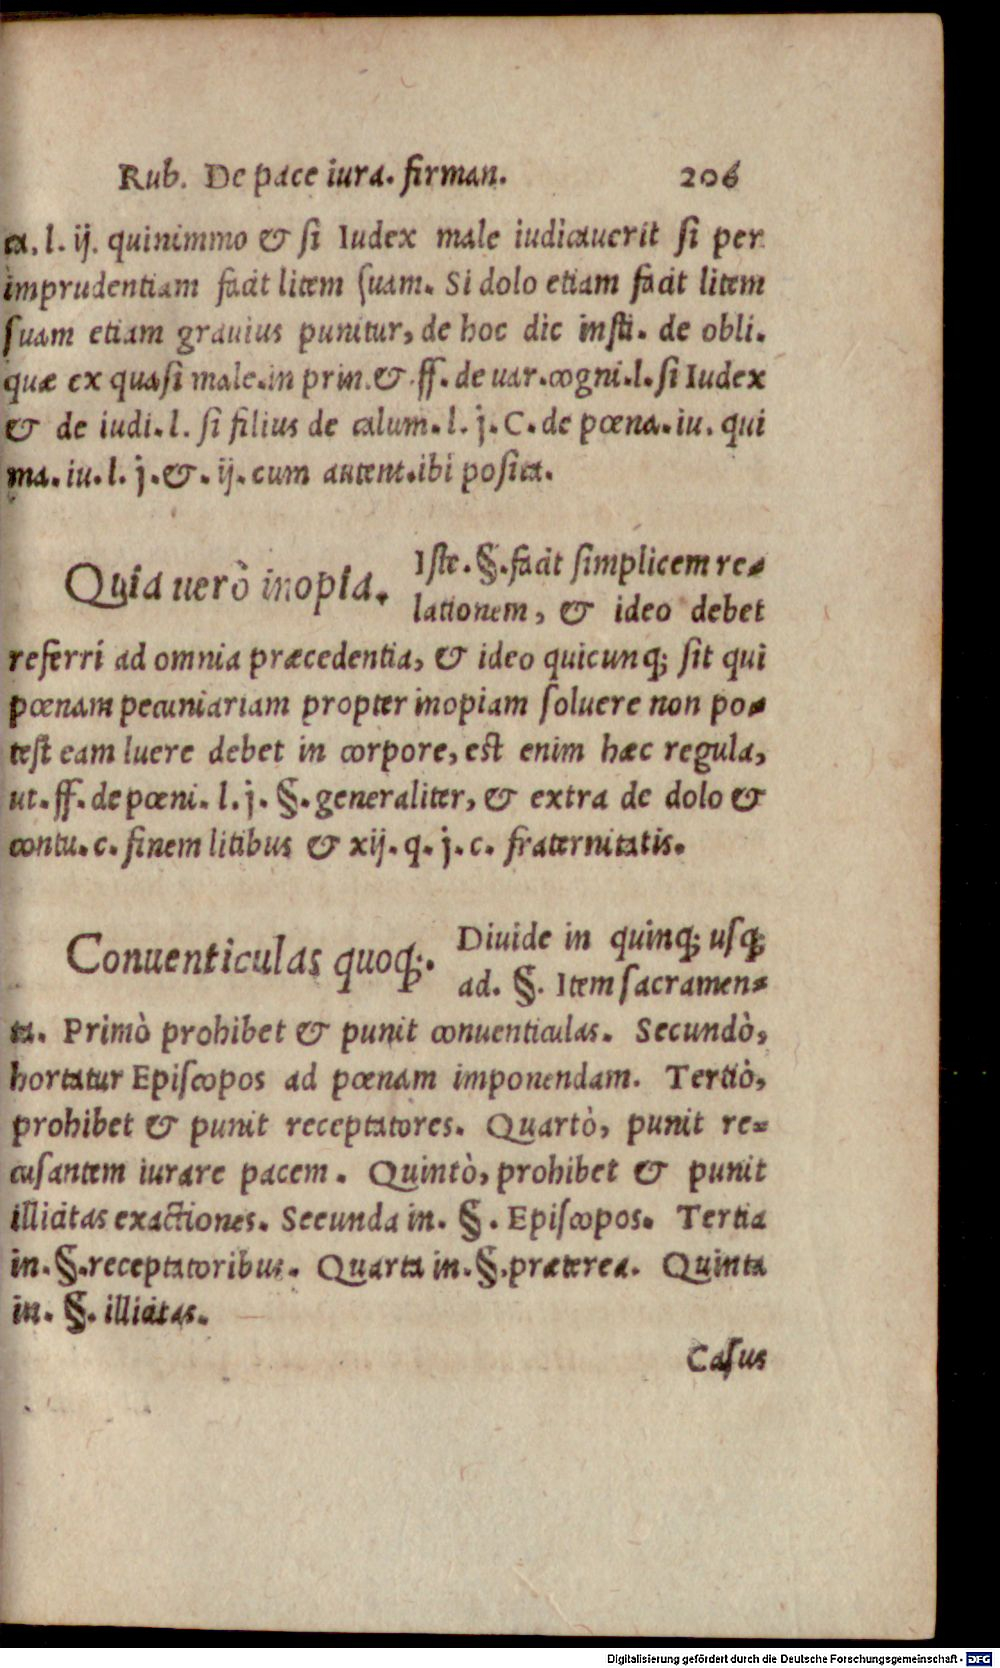 Rub. De pace iura. firman. 206
ta. l. ij. quinimmo & si Iudex male iudicauerit si per
imprudentiam facit litem suam. Si dolo etiam facit litem
suam etiam grauius punitur, de hoc dic insti. de obli.
quæ ex quasi male.in prin.& ff. de uar.cogni.l. si Iudex
& de iudi. l. si filius de calum. l. j. C. de pœna. iu. qui
ma. iu. l. j. &. ij. cum autent.ibi posita.
Quia uerò inopia. Iste. §. facit simplicem re-
lationem, & ideo debet
referri ad omnia præcedentia, & ideo quicunq; sit qui
pœnam pecuniariam propter inopiam soluere non po-
test eam luere debet in corpore, est enim hæc regula,
ut. ff. de pœni. l. j. §. generaliter, & extra de dolo &
contu. c. finem litibus & xij. q. j. c. fraternitatis.
Conuenticulas quoq;. Diuide in quinq; usq;
ad. §. Item sacramen-
ta. Primò prohibet & punit conuenticulas. Secundò,
hortatur Episcopos ad pœnam imponendam. Tertiò,
prohibet & punit receptatores. Quartò, punit re-
cusantem iurare pacem. Quintò, prohibet & punit
illicitas exactiones. Secunda in. §. Episcopos. Tertia
in. §. receptatoribus. Quarta in. §. præterea. Quinta
in. §. illicitas.
Casus
Digitalisierung gefördert durch die Deutsche Forschungsgemeinschaft - DFG